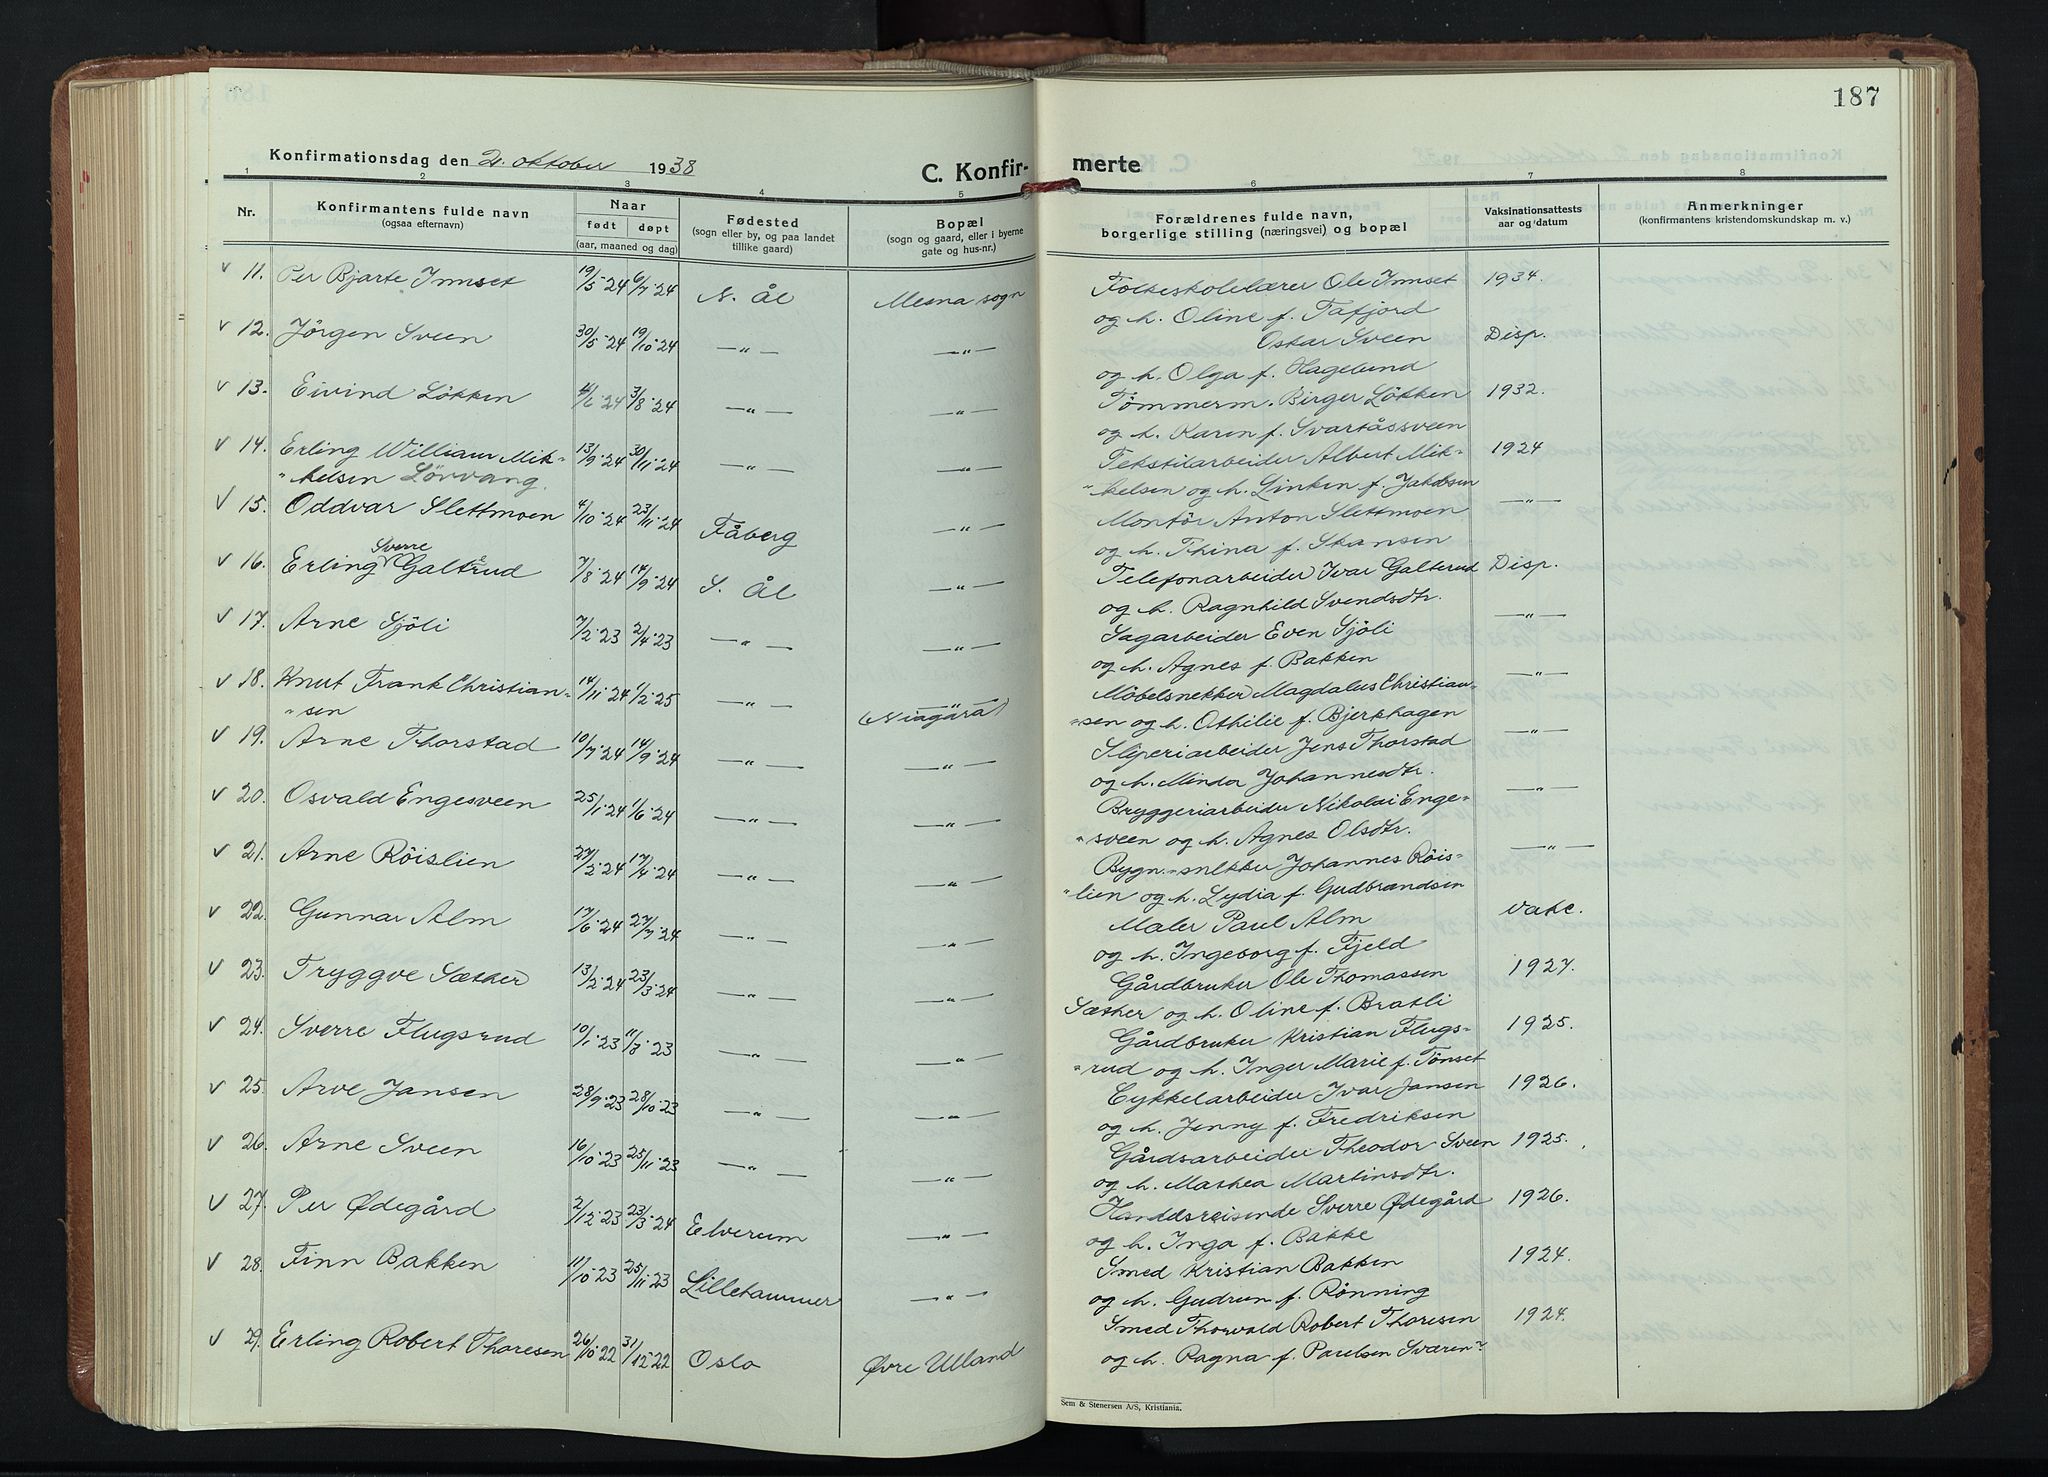 187
Konfirmationsdag den 2. oktober 1938
C. Konfir-
merte
1 2 3 4 5 6 7 8
Nr.
Konfirmantens fulde navn
(ogsaa efternavn)
Naar
født døpt
(aar, maaned og dag)
Fødested
(sogn eller by, og paa landet
tillike gaard)
Bopæl
(sogn og gaard, eller i byerne
gate og hus-nr.)
Forældrenes fulde navn,
borgerlige stilling (næringsvei) og bopæl
Vaksinationsattests
aar og datum
Anmerkninger
(konfirmantens kristendomskundskap m. v.)
√ 11. Per Bjarte Innset 19/5-24 6/7-24 N. Ål Mesna sogn Folkeskolelærer Ole Innset 1934.
og h. Oline f. Tafjord
√ 12. Jörgen Sveen 30/5-24 19/10-24 —"— —"— Oskar Sveen Disp.
og h. Olga f. Hagelund
√ 13. Eivind Lökken 4/6-24 3/8-24 —"— —"— Tömmerm. Birger Lökken 1932.
og h. Karen f. Svartåssveen
√ 14. Erling William Mik- 13/9-24 30/11-24 —"— —"— Tekstilarbeider Albert Mik- 1924
"kelsen Lörvang. "kelsen og h. Linken f. Jakobsen
√ 15. Oddvar Slettmoen 4/10-24 23/11-24 Fåberg —"— Montör Anton Slettmoen —"—
og h. Thina f. Skansen
√ 16. Erling Sverre Galterud 7/8-24 14/9-24 S. Ål —"— Telefonarbeider Ivar Galterud Disp.
og h. Ragnhild Svendsdtr.
√ 17. Arne Sjöli 7/2-23 2/4-23 —"— —"— Sagarbeider Even Sjöli —"—
og h. Agnes f. Bakken
√ 18. Knut Frank Christian- 14/11-24 1/2-25 —"— —"— Möbelsnekker Magdalus Christian- —"—
"sen (Niagara) "sen og h. Othilie f. Bjerkhagen
√ 19. Arne Thorstad 10/7-24 14/9-24 —"— —"— Sliperiarbeider Jens Thorstad —"—
og h. Minda Johannesdtr.
√ 20. Osvald Engesveen 25/1-24 1/6-24 —"— —"— Bryggeriarbeider Nikolai Enge- —"—
"sveen og h. Agnes Olsdtr.
√ 21. Arne Röislien 27/2-24 17/4-24 —"— —"— Bygn.-snekker Johannes Röis- —"—
"lien og h. Lydia f. Gudbrandsen
√ 22. Gunnar Alm 17/6-24 27/7-24 —"— —"— Maler Paul Alm vakc.
og h. Ingeborg f. Fjeld
√ 23. Tryggve Sæther 13/2-24 23/3-24 —"— —"— Gårdbruker Ole Thomassen 1927.
Sæther og h. Oline f. Bratli
√ 24. Sverre Flugsrud 10/1-23 11/3-23 —"— —"— Gårdbruker Kristian Flugs- 1925.
"rud og h. Inger Marie f. Tönset
√ 25. Arve Jansen 28/9-23 28/10-23 —"— —"— Cykkelarbeider Ivar Jansen 1926.
og h. Jenny f. Fredriksen
√ 26. Arne Sveen 16/10-23 25/11-23 —"— —"— Gårdsarbeider Theodor Sveen 1925.
og h. Mathea Martinsdtr.
√ 27. Per Ødegård 2/12-23 23/3-24 Elverum —"— Handelsreisende Sverre Ødegård 1926.
og h. Inga f. Bakke
√ 28. Finn Bakken 11/10-23 25/11-23 Lillehammer —"— Smed Kristian Bakken 1924.
og h. Gudrun f. Rönning
√ 29. Erling Robert Thoresen 26/10-22 31/12-22 Oslo Øvre Ulland Smed Thorvald Robert Thoresen 1924.
og h. Ragna f. Paulsen Sværen
Sem & Stenersen A/S, Kristiania.